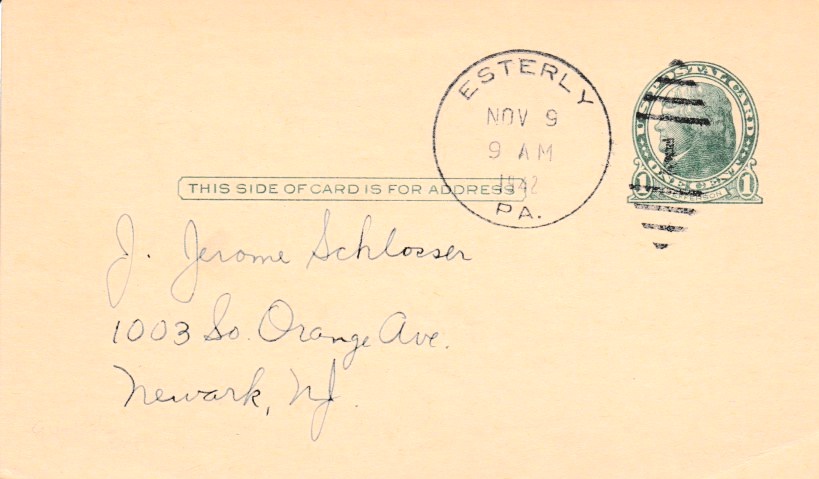 ESTERLY
NOV 9
9 AM
1942
PA.
U.S. POSTAL CARD
ONE CENT
1 JEFFERSON 1
THIS SIDE OF CARD IS FOR ADDRESS
J. Jerome Schlosser
1003 So. Orange Ave.
Newark, NJ.